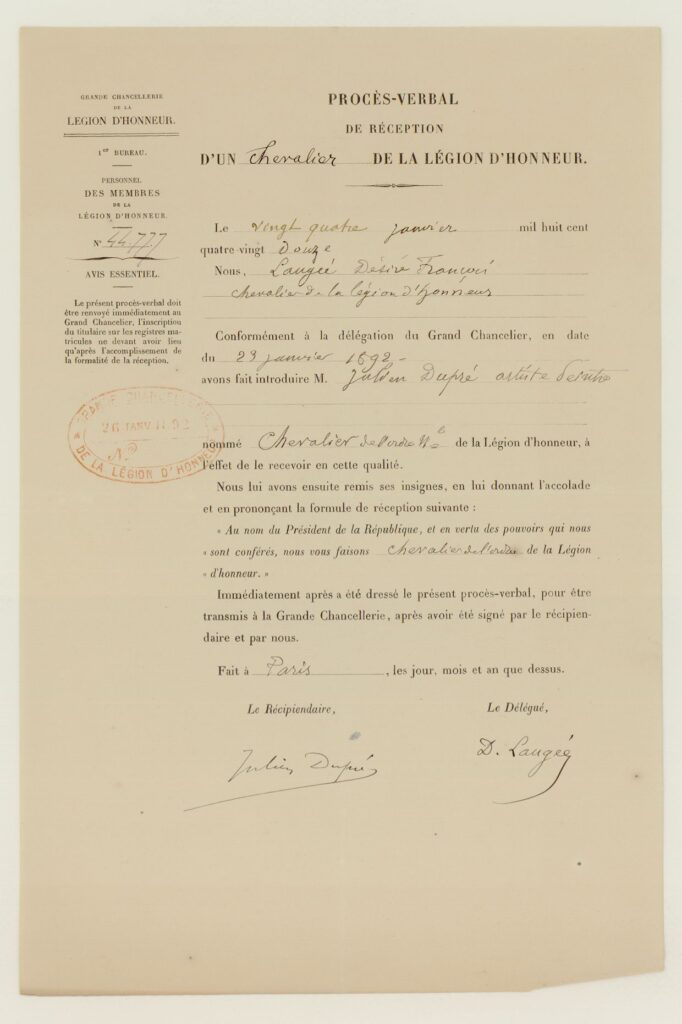 GRANDE CHANCELLERIE
DE LA
LEGION D'HONNEUR.
1er BUREAU.
PERSONNEL
DES MEMBRES
DE LA
LÉGION D'HONNEUR.
N° 44.777
AVIS ESSENTIEL.
Le présent procès-verbal doit
être renvoyé immédiatement au
Grand Chancelier, l'inscription
du titulaire sur les registres ma-
tricules ne devant avoir lieu
qu'après l'accomplissement de
la formalité de la réception.
GRANDE CHANCELLERIE
26 JANV. 1892
N°
DE LA LÉGION D'HONNEUR
PROCÈS-VERBAL
DE RÉCEPTION
D'UN Chevalier DE LA LÉGION D'HONNEUR.
Le vingt quatre janvier mil huit cent
quatre-vingt douze
Nous, Laugée Désiré François
chevalier de la légion d'honneur
Conformément à la délégation du Grand Chancelier, en date
du 23 janvier 1892 -
avons fait introduire M. Julien Dupré artiste Peintre
nommé Chevalier de l'ordre Nal de la Légion d'honneur, à
l'effet de le recevoir en cette qualité.
Nous lui avons ensuite remis ses insignes, en lui donnant l'accolade
et en prononçant la formule de réception suivante :
« Au nom du Président de la République, et en vertu des pouvoirs qui nous
« sont conférés, nous vous faisons chevalier de l'ordre de la Légion
« d'honneur. »
Immédiatement après a été dressé le présent procès-verbal, pour être
transmis à la Grande Chancellerie, après avoir été signé par le récipien-
daire et par nous.
Fait à Paris , les jour, mois et an que dessus.
Le Récipiendaire,
Le Délégué,
Julien Dupré
D. Laugée